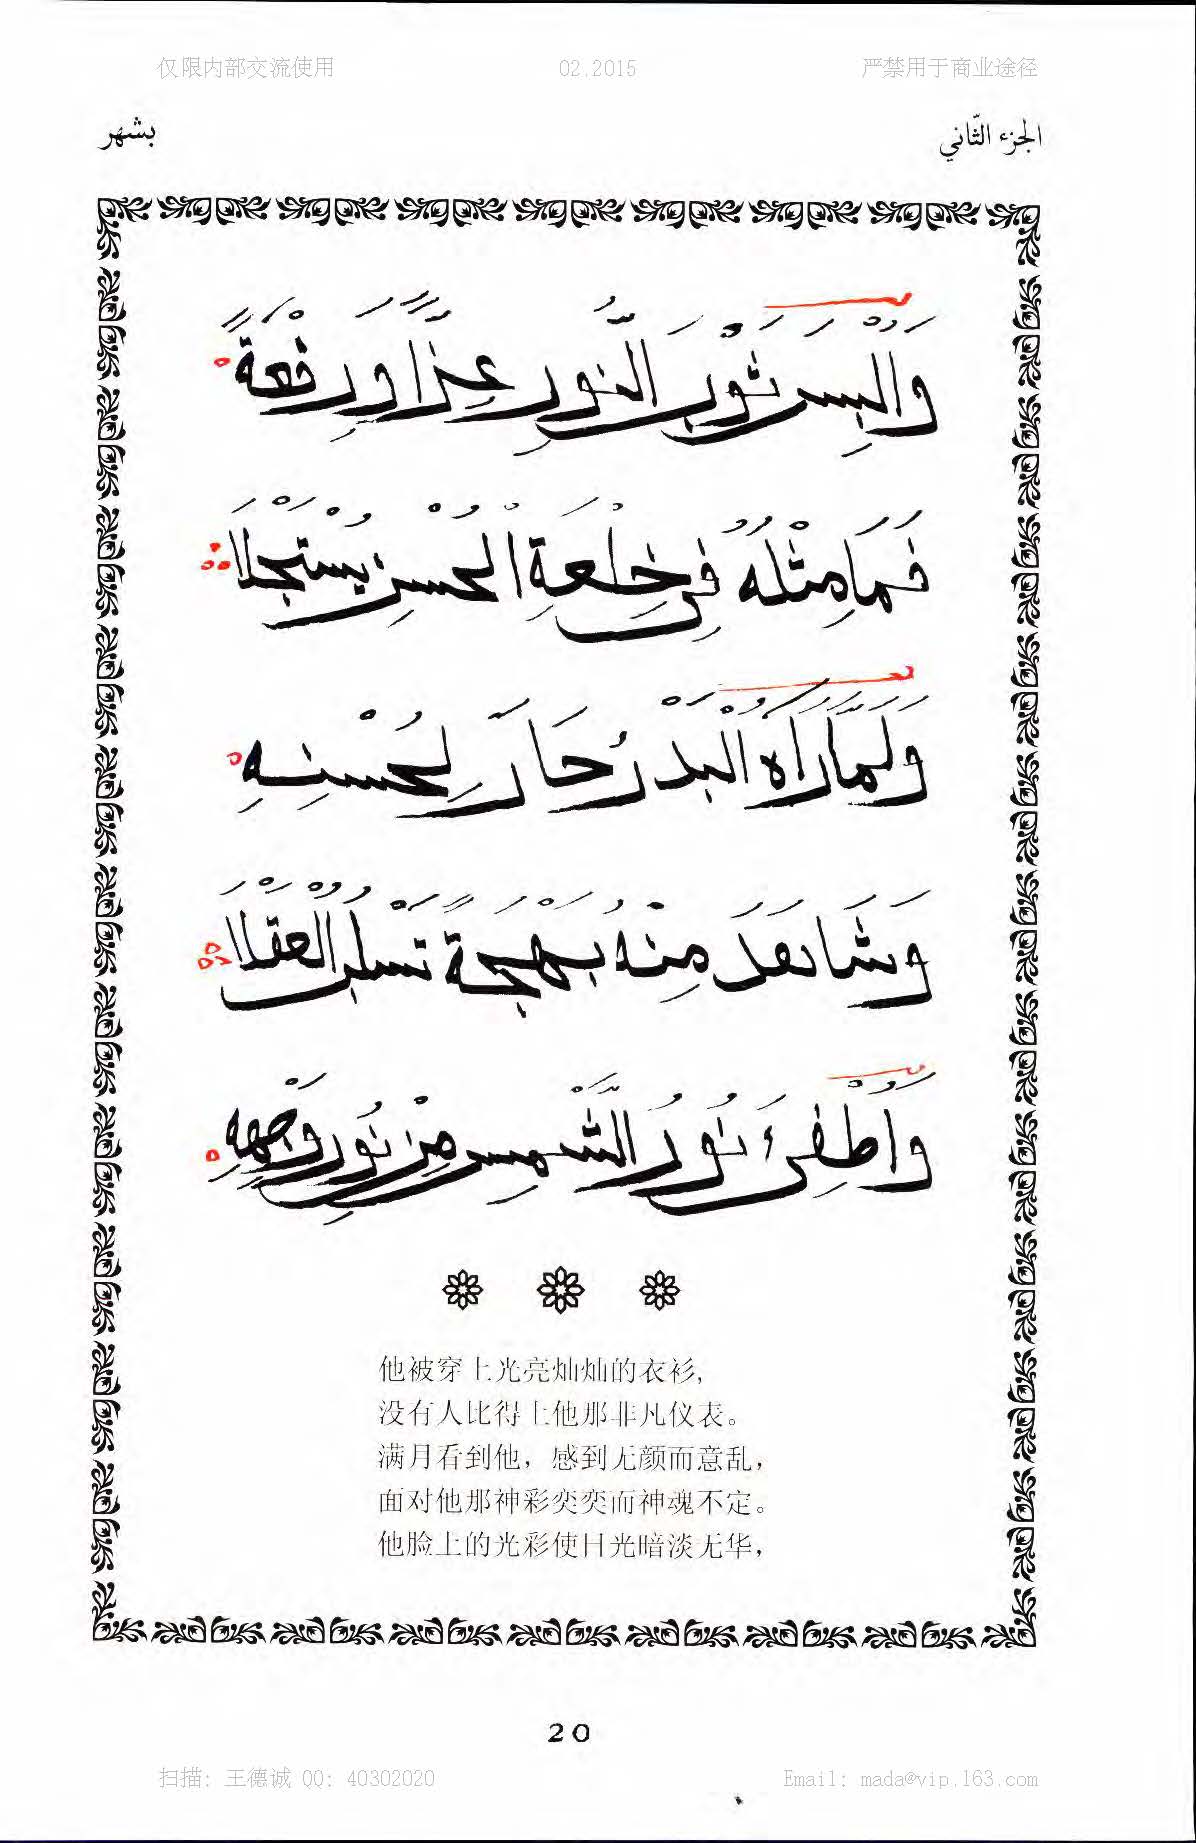 仅限内部交流使用 02.2015 严禁用于商业途径
الجزء الثّاني بشهر
وَأُلْبِسَ ثَوْبَ النُّورِ عِزًّا وَرِفْعَةً
فَمَا مِثْلُهُ فِي خِلْعَةِ الْحُسْنِ يُسْتَجْلَا
وَلَمَّا رَاَهُ الْبَدْرُ حَارَ لِحُسْنِهِ
وَشَاهَدَ مِنْهُ بَهْجَةً تَسْلُبُ الْعَقْلَا
وَاُطْفِئَ نُورُ الشَّمْسِ مِنْ نُورِ وَجْهِهِ
他被穿上光亮灿灿的衣衫,
没有人比得上他那非凡仪表。
满月看到他，感到无颜而意乱，
面对他那神彩奕奕而神魂不定。
他脸上的光彩使日光暗淡无华，
20
扫描: 王德诚 QQ: 40302020 Email: mada@vip.163.com